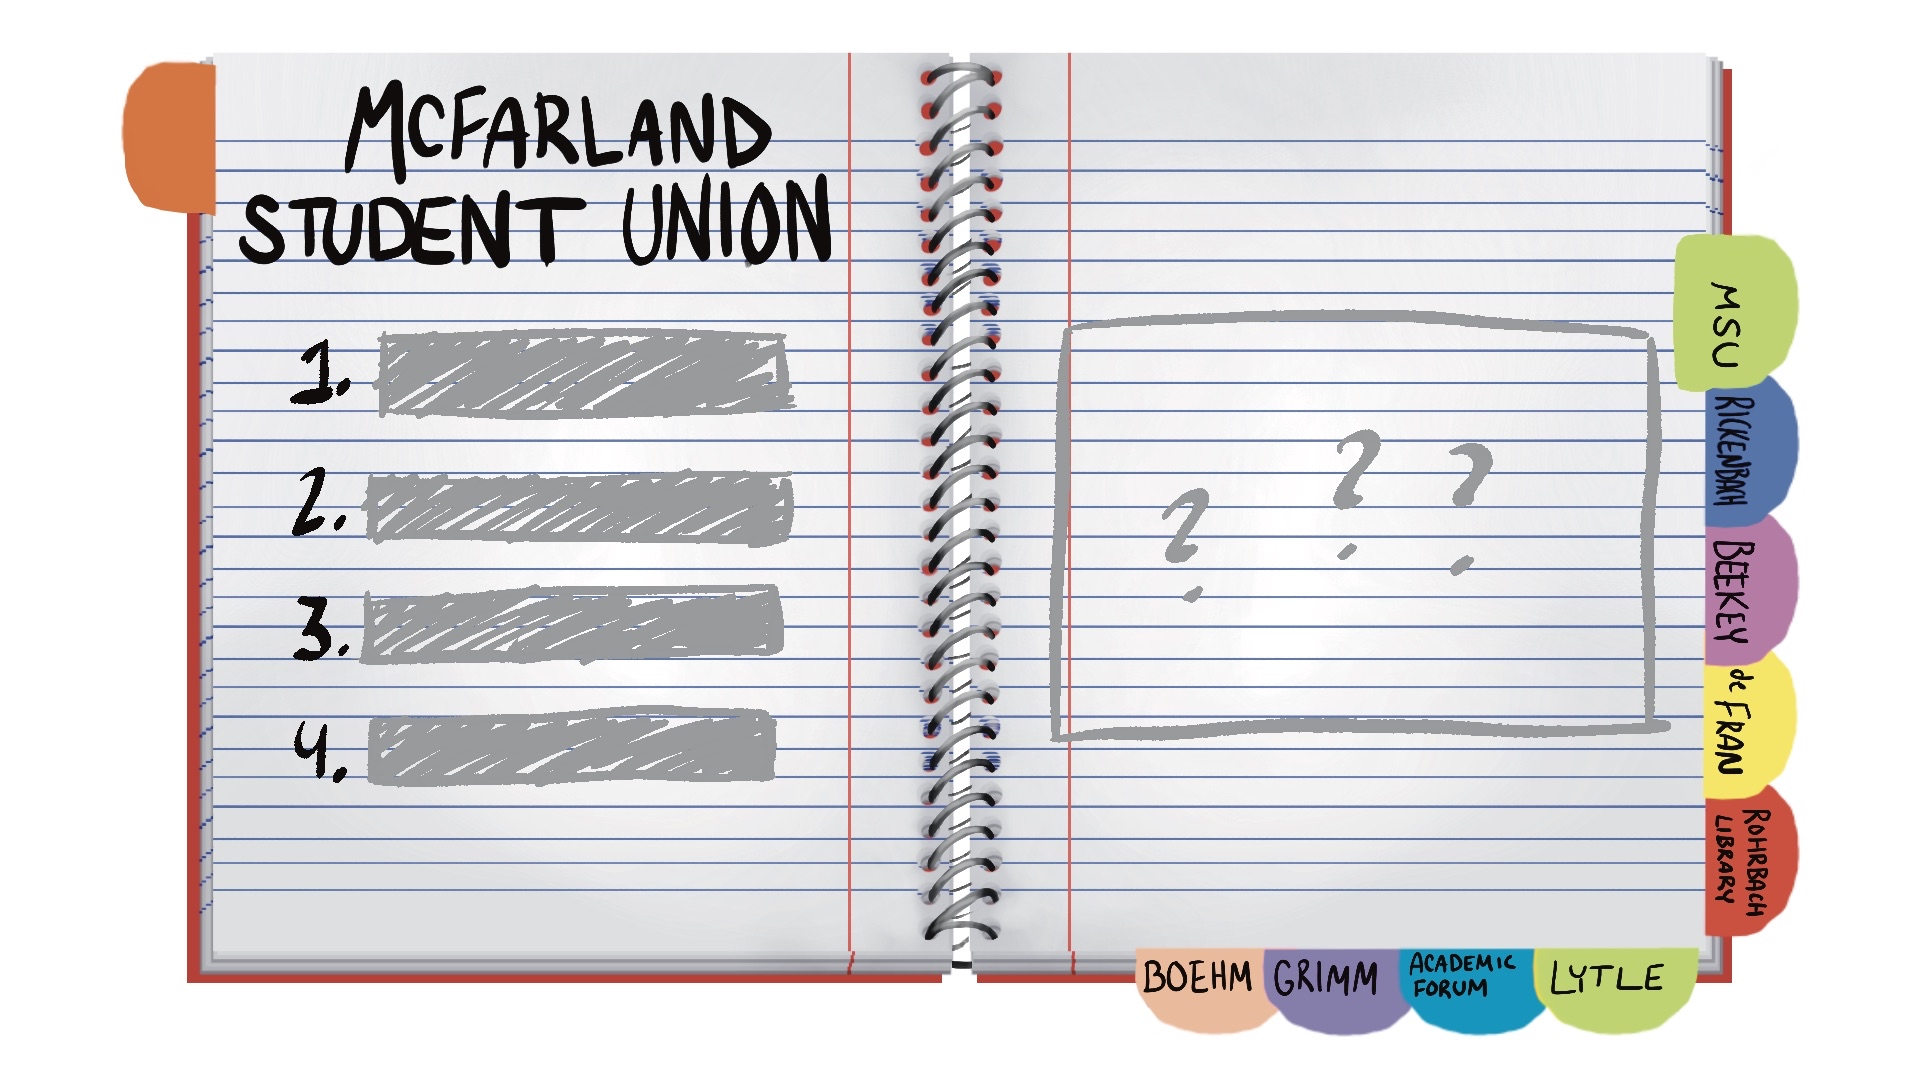 McFARLAND
STUDENT UNION
1.
2.
3.
4.
? ? ?
MSU
RICKENBACH
BEEKEY
de FRAN
ROHRBACH
LIBRARY
BOEHM
GRIMM
ACADEMIC
FORUM
LYTLE